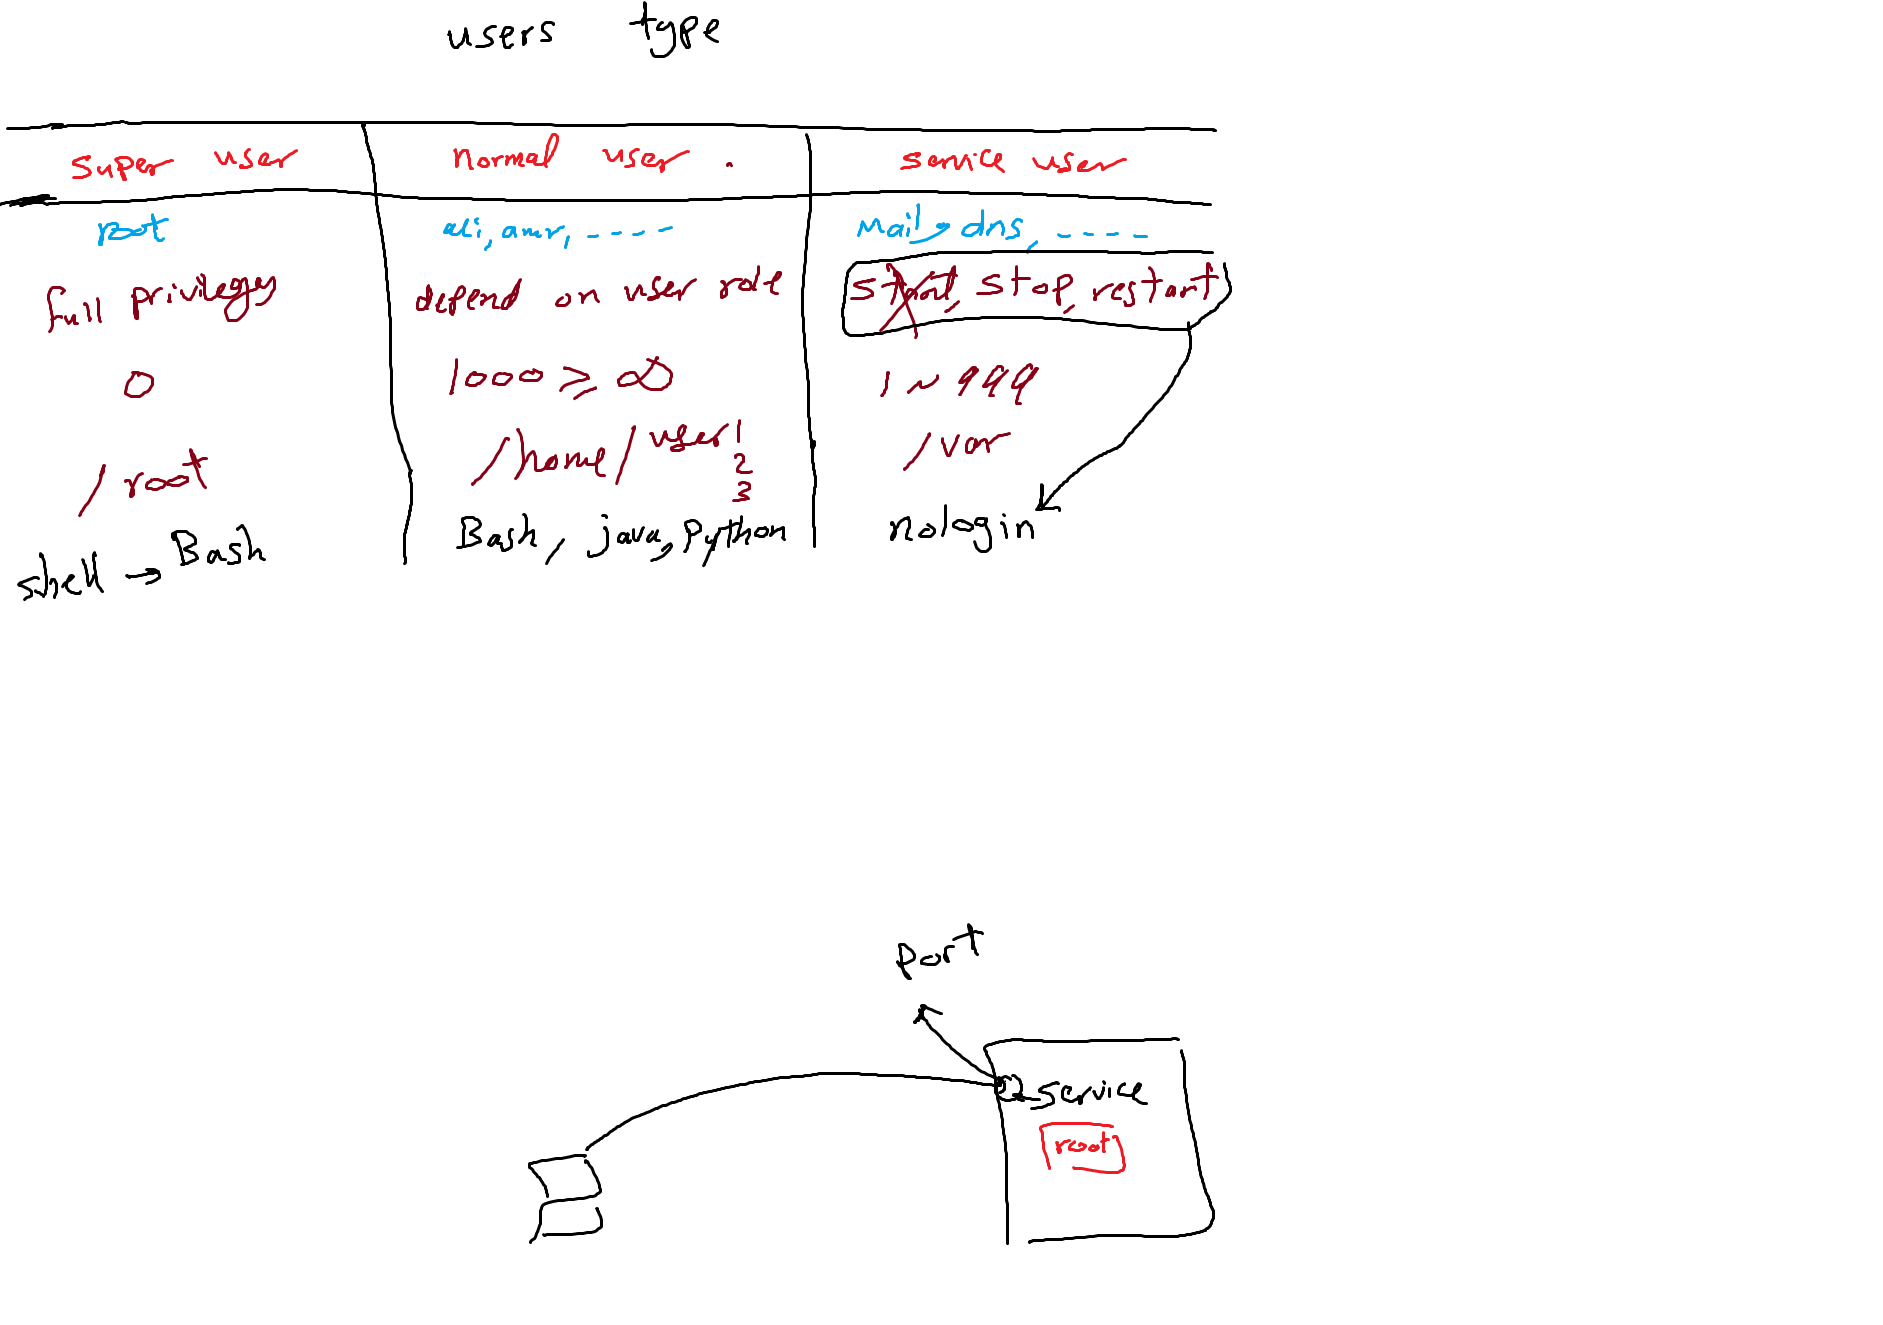 users type
super user normal user . service user
root ali, amr, ---- Mail, dns, ----
full privilegs depend on user role start, stop, restart
0 1000 ≥ ∞ 1 ~ 999
/root /home/user1 /var
2
3
shell → Bash Bash, java, Python nologin
port
service
root